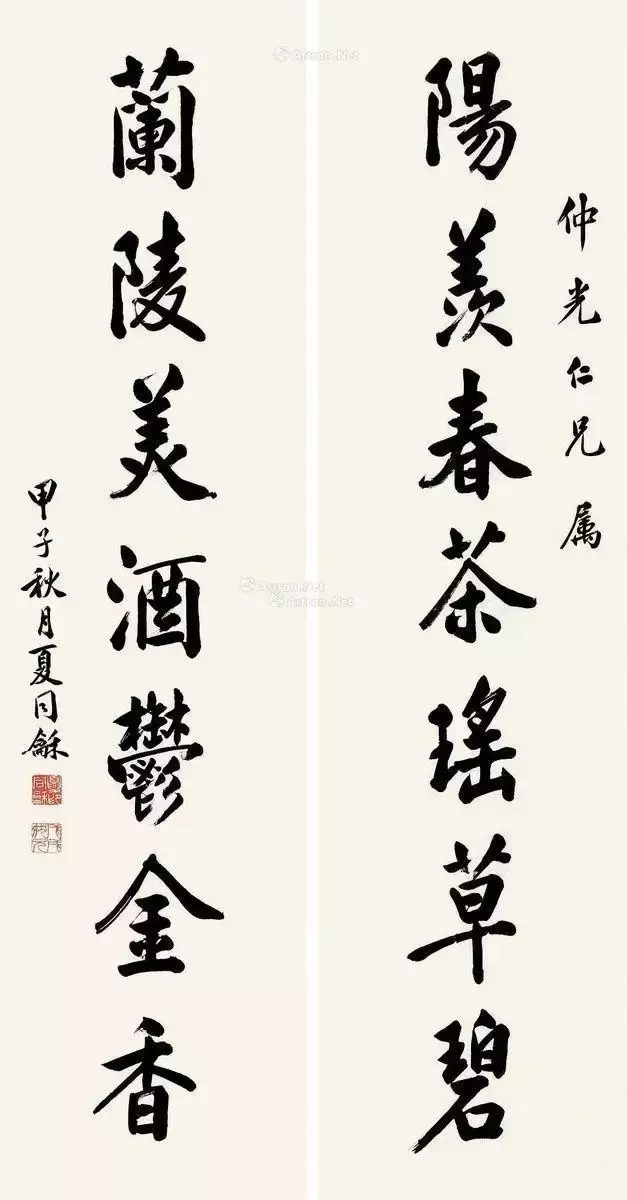 仲光仁兄属
陽羨春茶瑤草碧
蘭陵美酒鬱金香
甲子秋月夏同龢
Artron.Net
Artron.Net
Artron.Net